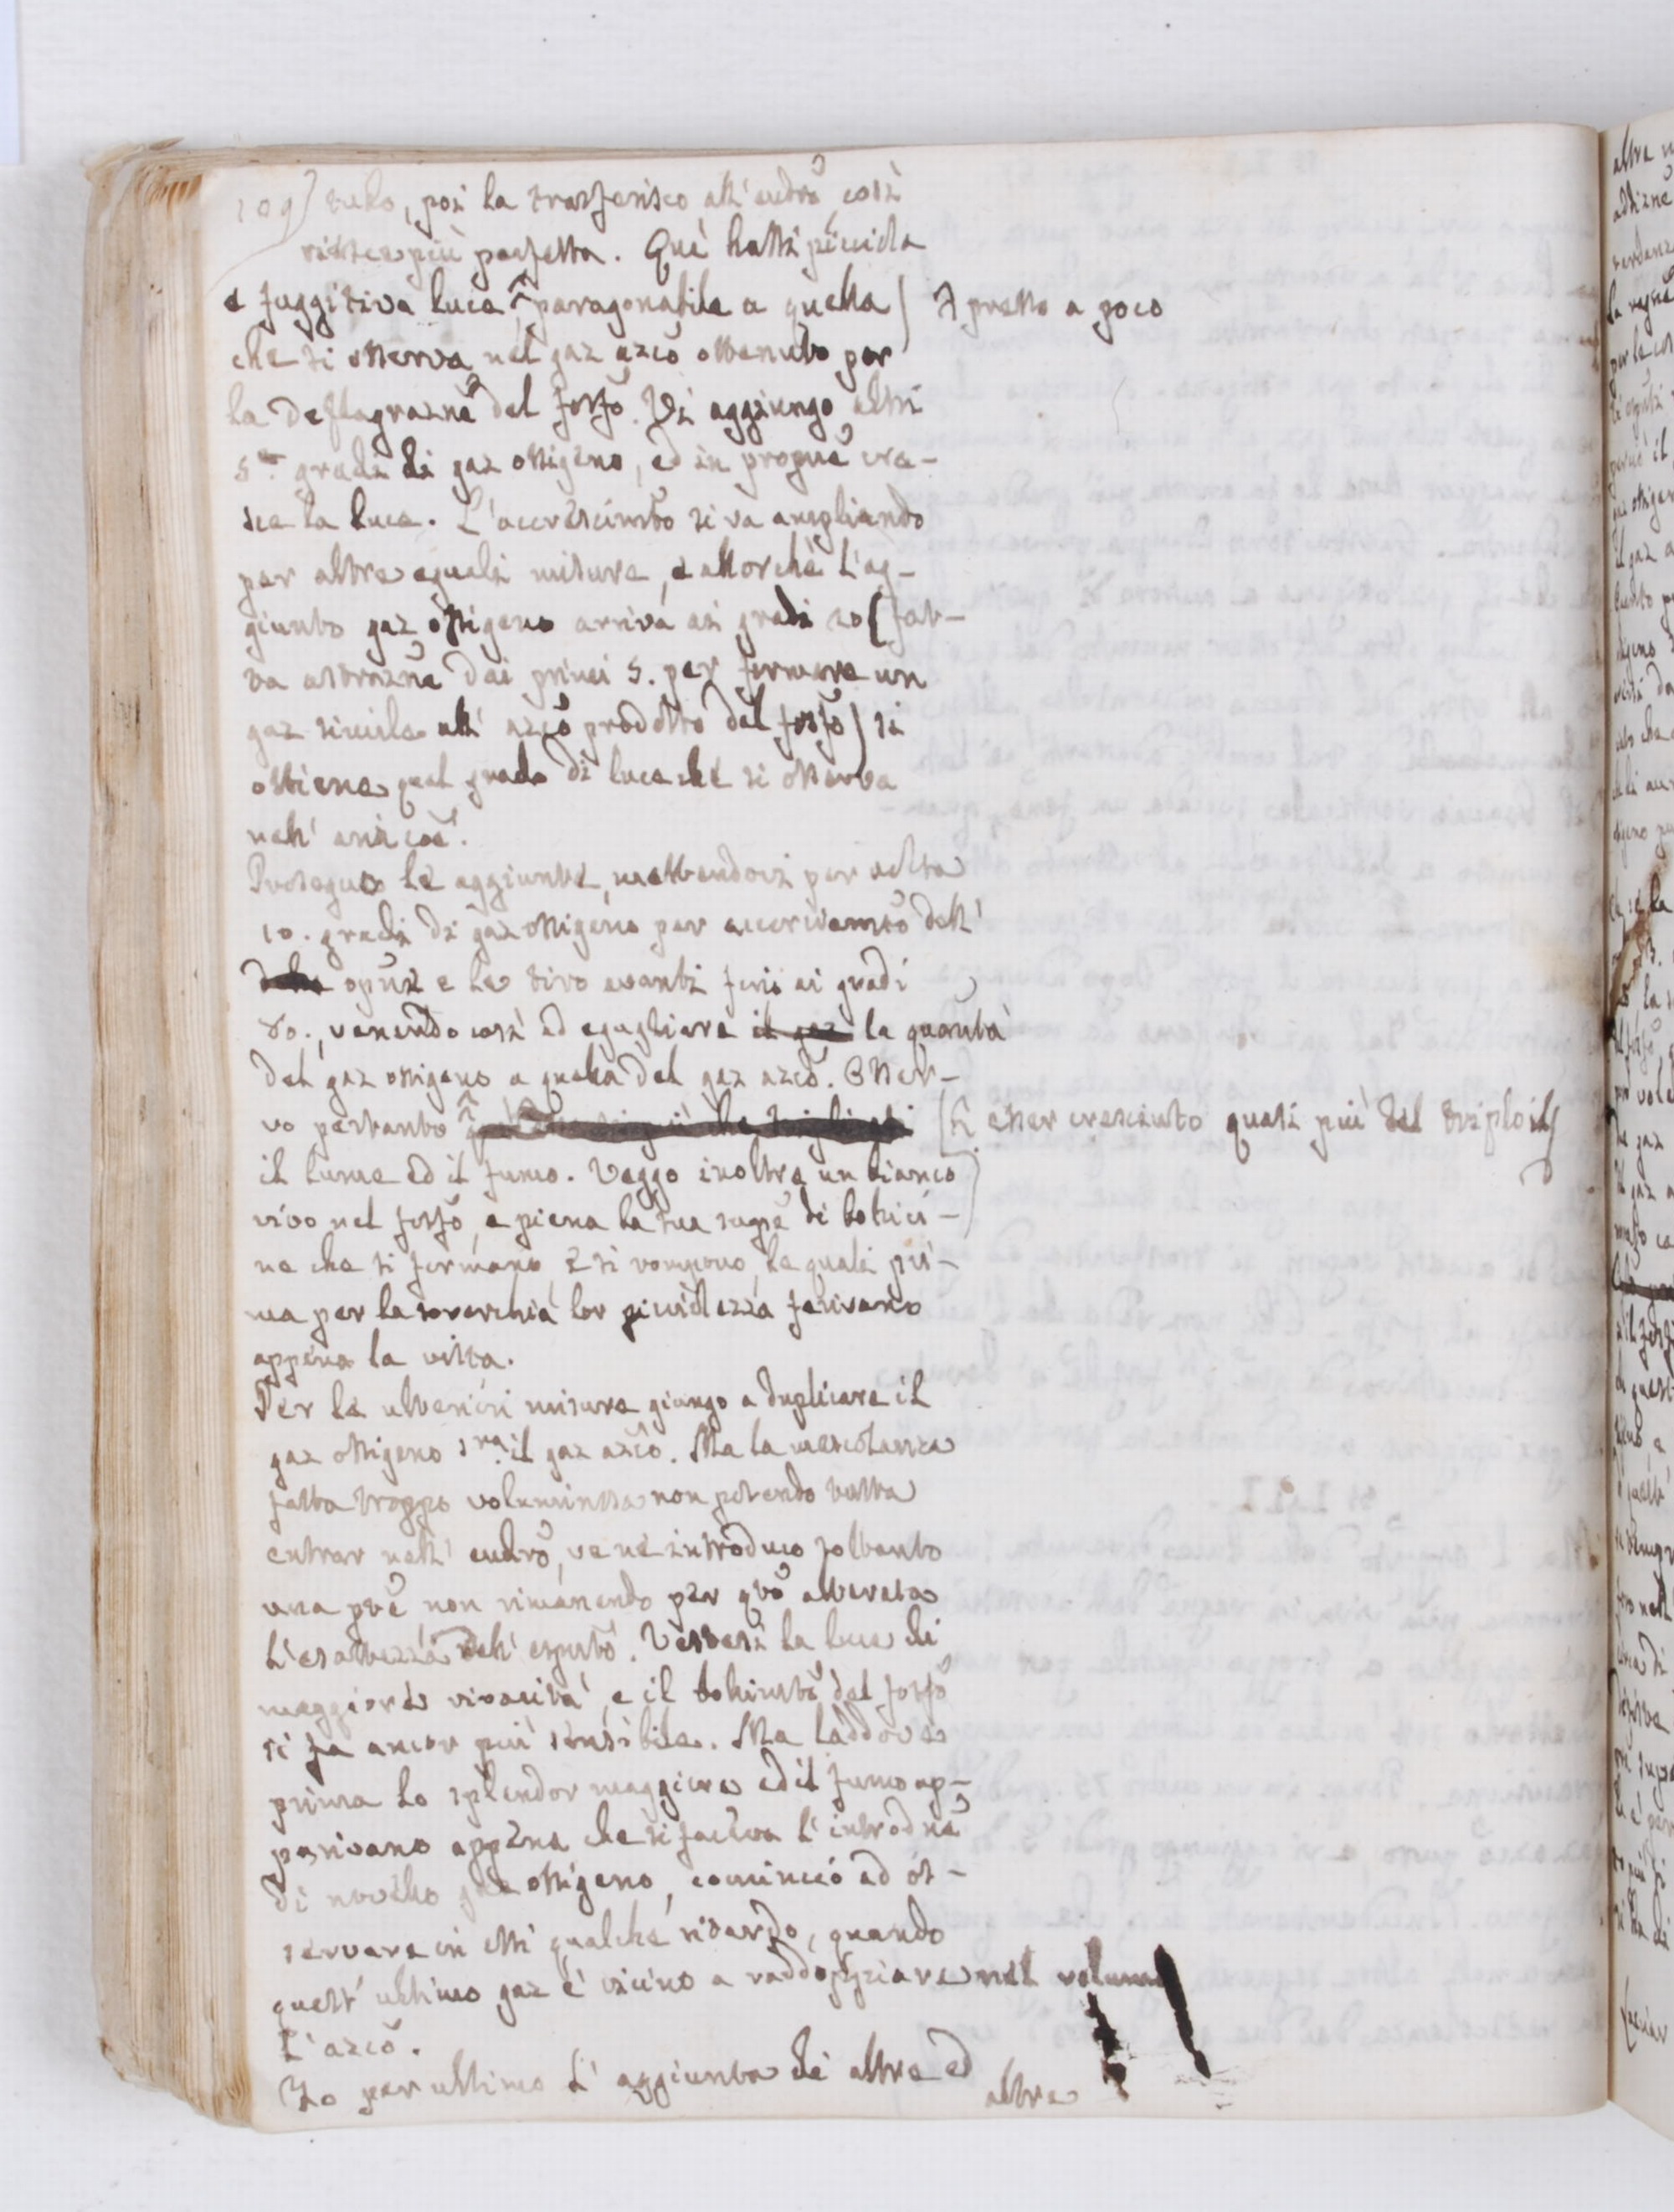 109) tubo, poi la trasferisco all' eudro, così
riesce più perfetta. Quì hassi piccicla
e fuggitiva luce, paragonabile a quella
) presso a poco
che si osserva nel gaz azco ottenuto per
la deflagrazne del fosfo. Vi aggiungo altri
5. gradi di gaz ossigeno, ed in propne cre-
sce la luce. L'accrescimto si va ampliando
per altre eguali misure, e allorchè l'ag-
giunto gaz ossigeno arriva ai gradi 20 (fat-
ta astrazne dai primi 5. per formare un
gaz simile all' azco prodotto dal fosfo) si
ottiene quel grado di luce che si osserva
nell' aria coe.
Proseguo le aggiunte, mettendovi per volta
10. gradi di gaz ossigeno per accorciamto dell'
opnz e le tiro avanti fino ai gradi
80., venendo così ad eguagliare il gaz la quantà
del gaz ossigeno a quella del gaz azco. Osser-
vo pertanto più che triplicati
esser cresciuto quasi più del triplo il
il lume ed il fumo. Veggo inoltre un bianco
vivo nel fosfo, e piena la sua supfe di bollici-
ne che si formano, e si rompono, le quali pri-
ma per la soverchia lor picciolezza ferivano
appena la vista.
Per le ulteriori misure giungo a duplicare il
gaz ossigeno sra il gaz azco. Ma la mescolanza
fatta troppo voluminosa non potendo tutta
entrar nell' eudro, ve ne introduco soltanto
una pte non rimanendo per qto alterata
l'esattezza dell' esperto. Vestesi la luce di
maggiore vivacità, e il bollimto del fosfo
si fa ancor più sensibile. Ma laddove
prima lo splendor maggiore ed il fumo ap-
parivano appena che si faceva l'introdne
di novello gaz ossigeno, cominciò ad os-
servare in essi qualche ritardo, quando
quest' ultimo gaz è vicino a raddoppiare nel volume
l'azco.
Io per ultimo l'aggiunta di altre ed
altre